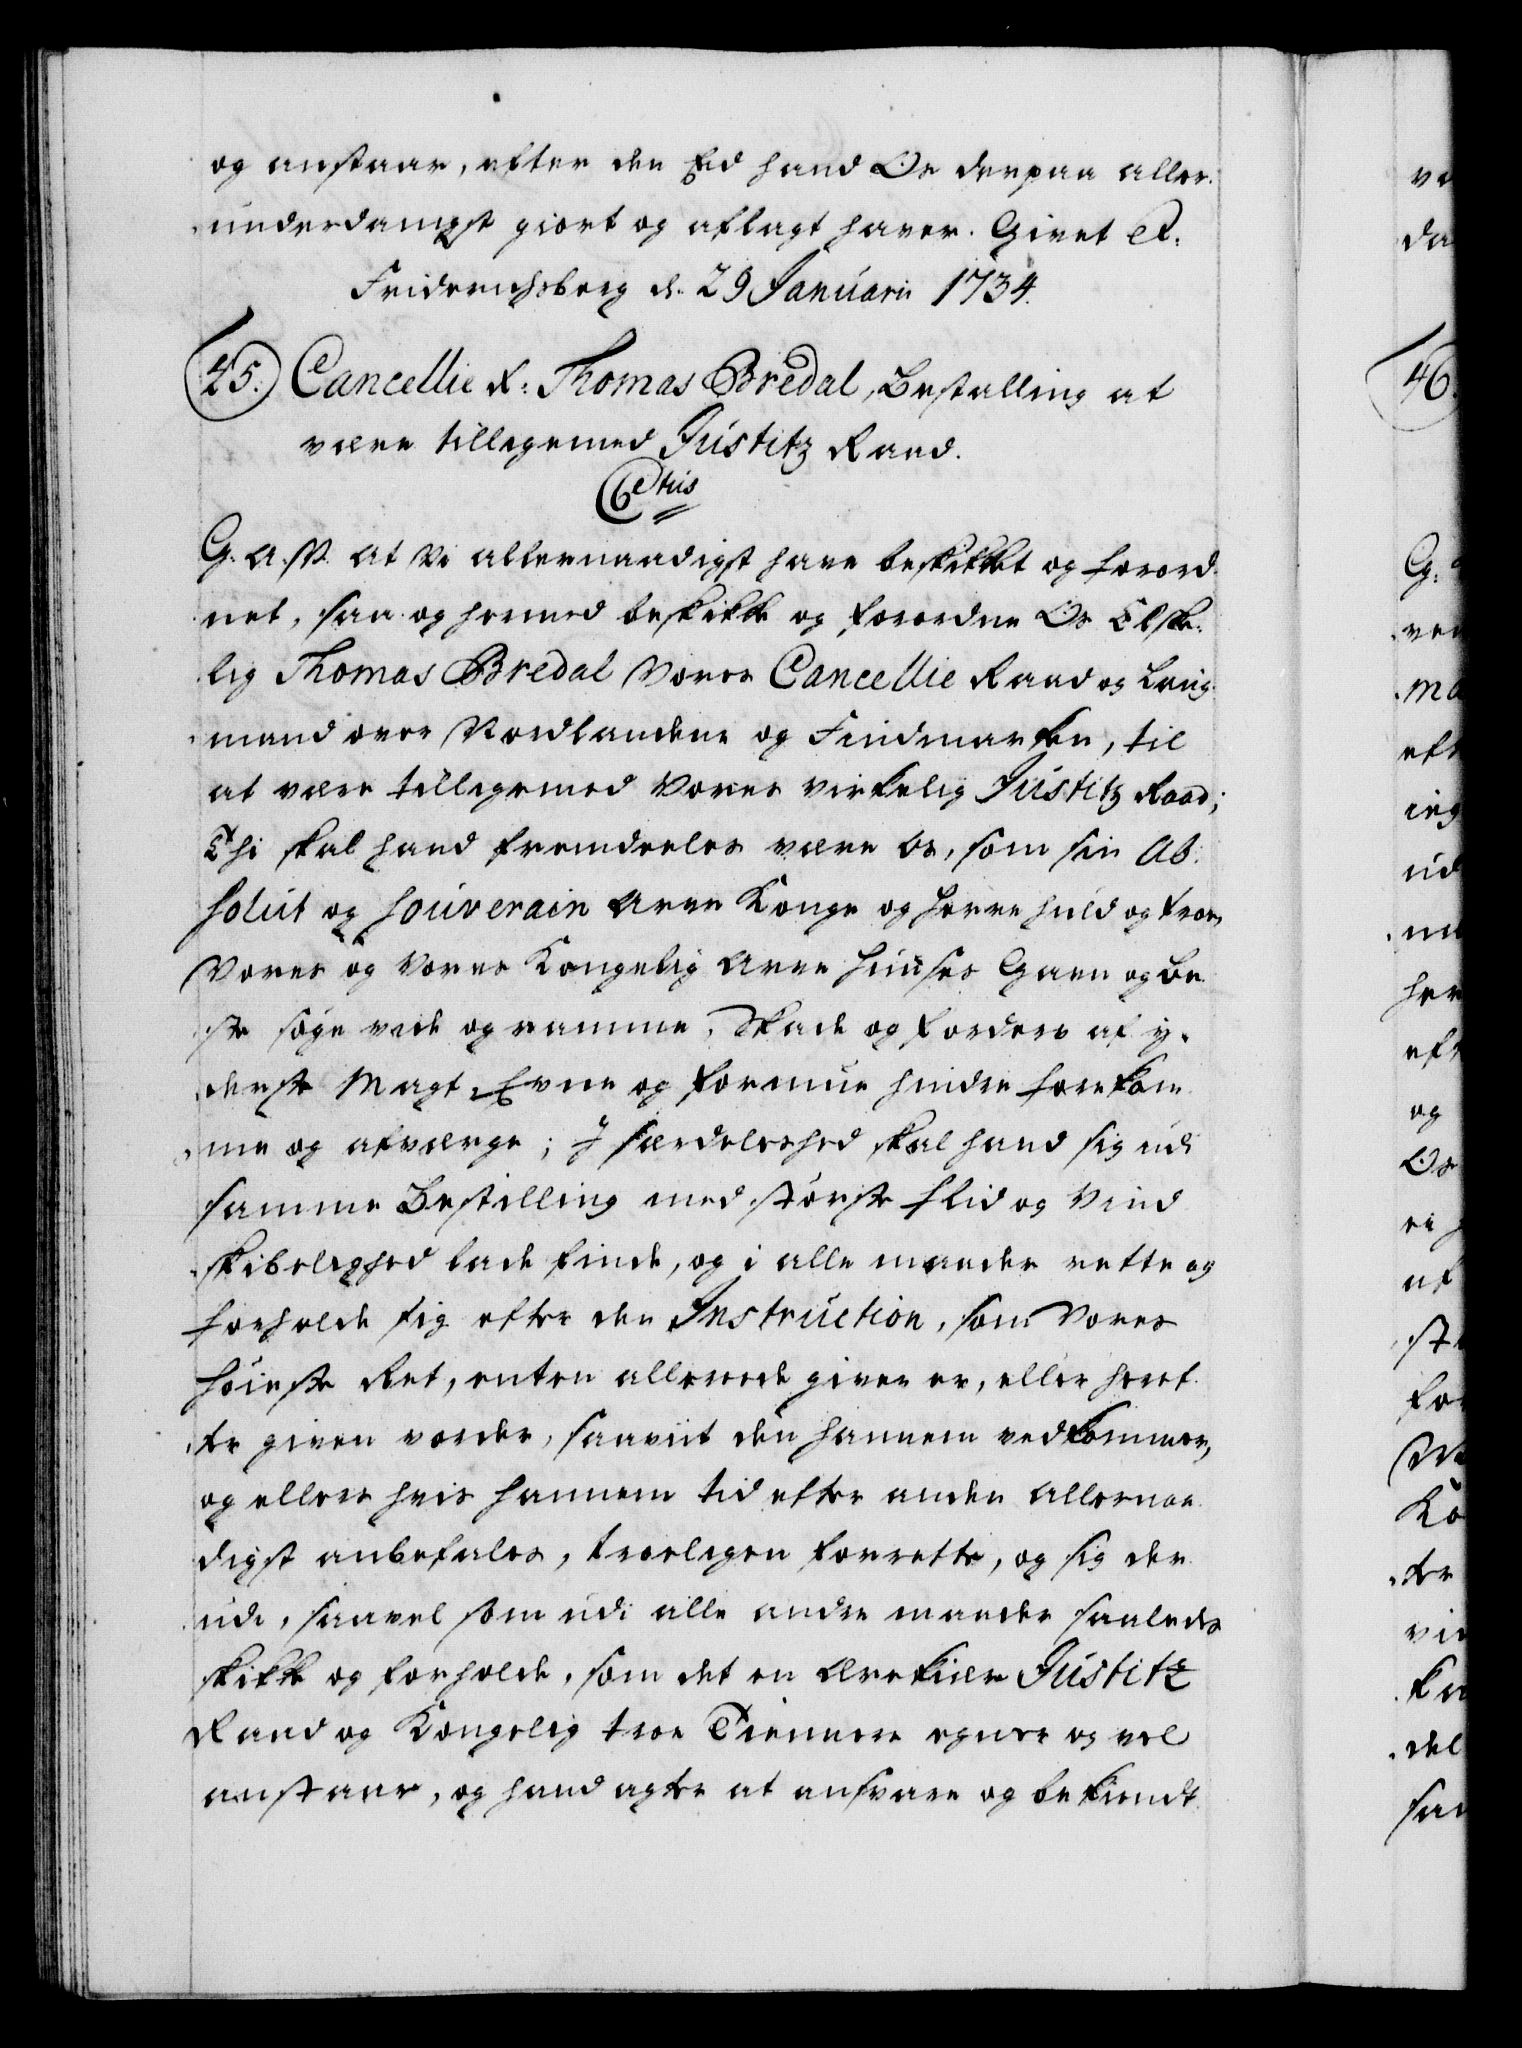 og anstaar, efter den Eed hand Os derpaa aller-
underdanigst giort og aflagt haver. Givet etc.
Friderichsberg d. 29 Januarii 1734.
45. Cancellie R: Thomas Bredal, Bestalling at
være tilligemed Justitz Raad.
C6tus
G. A. V. at Vi allernaadigst have beskikket og forord-
net, saa og hermed beskikke og forordne Os Elske-
lig Thomas Bredal Vores Cancellie Raad og Laug-
mand over Nordlandene og Findmarken, til
at være tilligemed Vores virkelig Justitz Raad;
Thi skal hand fremdeeles være Os, som sin Ab-
solut og souverain Arve Konge og Herre huld og troe,
Vores og Vores Kongelig Arve Huuses Gavn og Be-
ste søge vide og ramme, Skade og Forderv af y-
derste Magt, Evne og formue hindre forekom-
me og afværge; J særdeleshed skal hand sig udi
samme Bestilling med største flid og Vind-
skibelighed lade finde, og i alle maader rette og
forholde sig efter den Instruction, som Vores
Høieste Ret, enten allerede given er, eller heref-
ter given vorder, saaviit den hannem vedkommer,
og ellers hvis hannem tid efter anden allernaa-
digst anbefales, troeligen forrette, og sig der-
udi, saavel som udi alle andre maader saaledes
skikke og forholde, som det en Ærekiær Justitz
Raad og Kongelig troe Tiennere egner og vel
anstaaer, og hand agter at ansvare og bekiendt
46